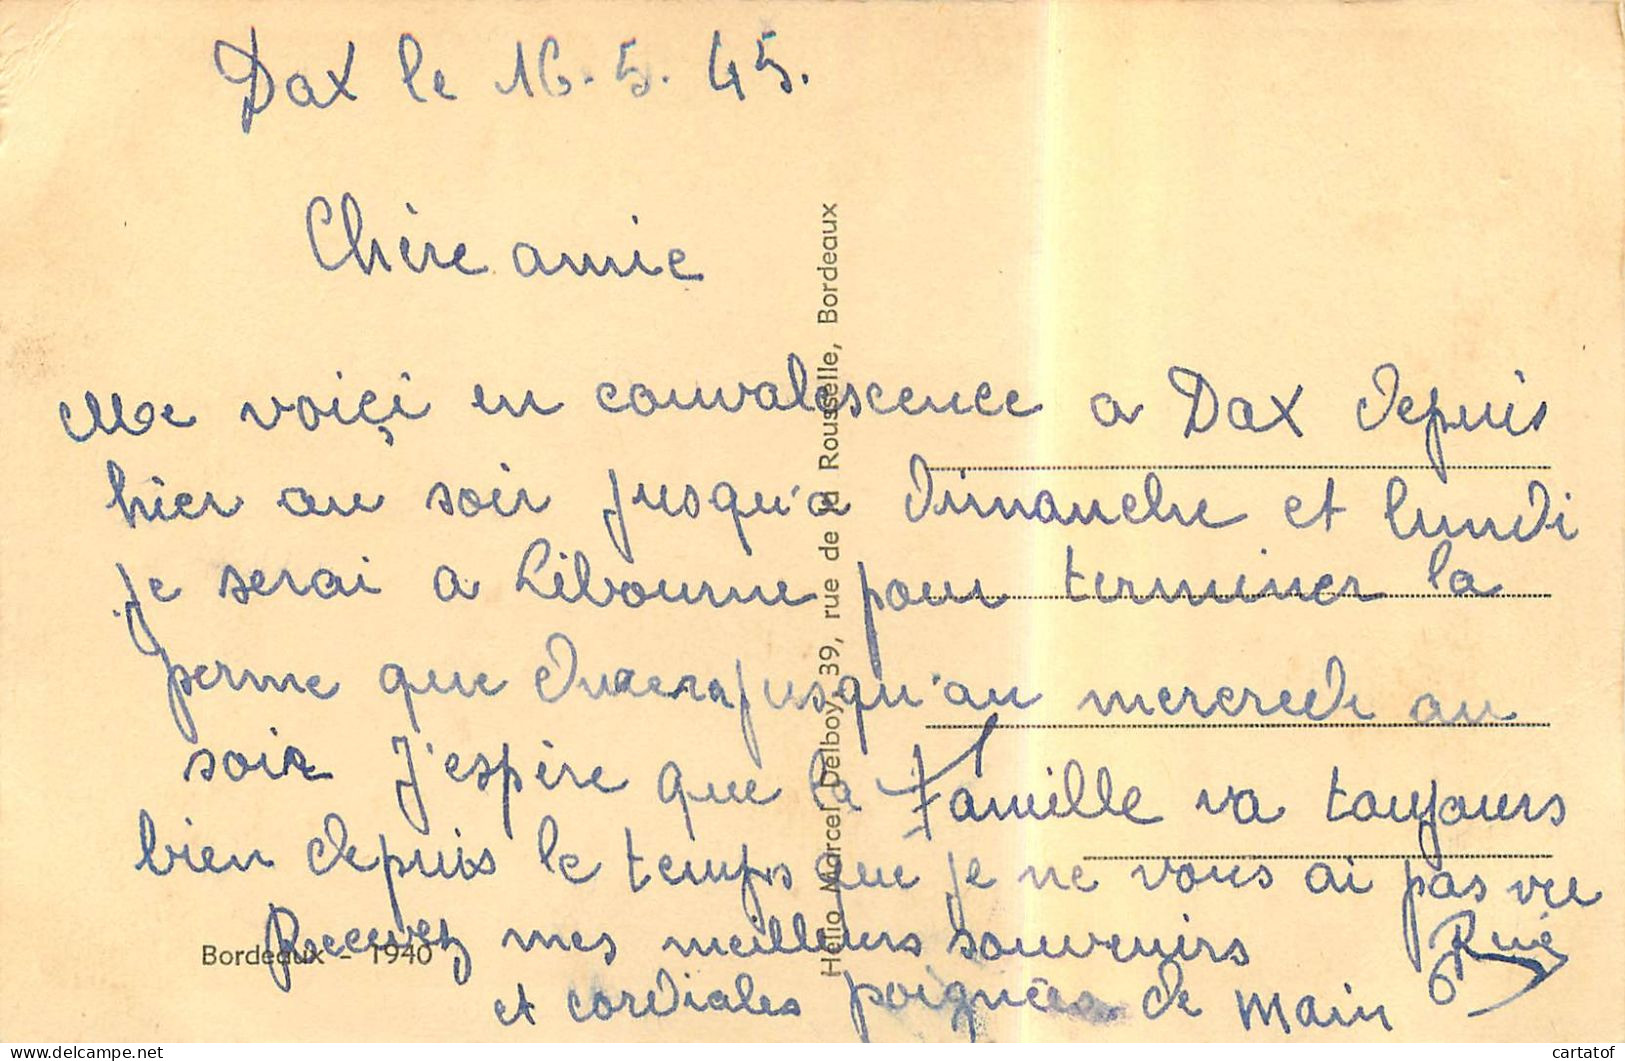 Dax le 16.5.45.
Chère amie
Me voiçi en convalescence a Dax depuis
hier au soir jusqu'a dimanche et lundi
je serai a Libourne pour terminer la
perme que durera jusqu'au mercredi au
soir J'espère que la Famille va toujours
bien depuis le temps que je ne vous ai pas vue
Recevez mes meilleurs souvenirs
et cordiales poignées de main
Bordeaux - 1940
Hélio Marcel Delboy, 39, rue de la Rousselle, Bordeaux
cartatof